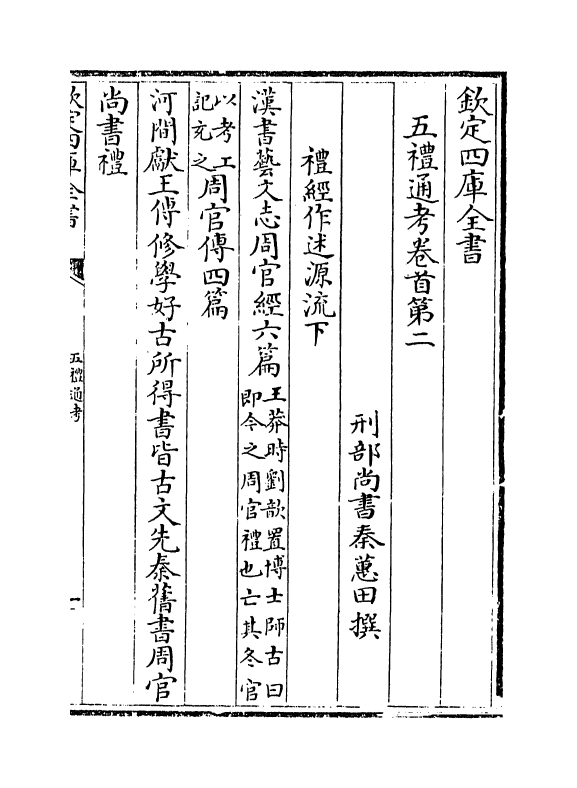 欽定四庫全書
五禮通考卷首第二
刑部尚書秦蕙田撰
禮經作述源流下
漢書藝文志周官經六篇王莽時劉歆置博士師古曰
即今之周官禮也亡其冬官
以考工
記充之周官傳四篇
河間獻王傳修學好古所得書皆古文先秦舊書周官
尚書禮
欽定四庫全書
五禮通考
一